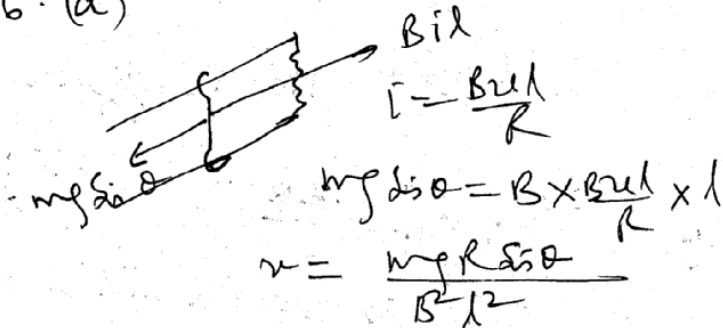 6. (a)
Bil
i = Bul/R
mg sin θ
mg sin θ = B × Bul/R × l
u = mgR sin θ / B²l²